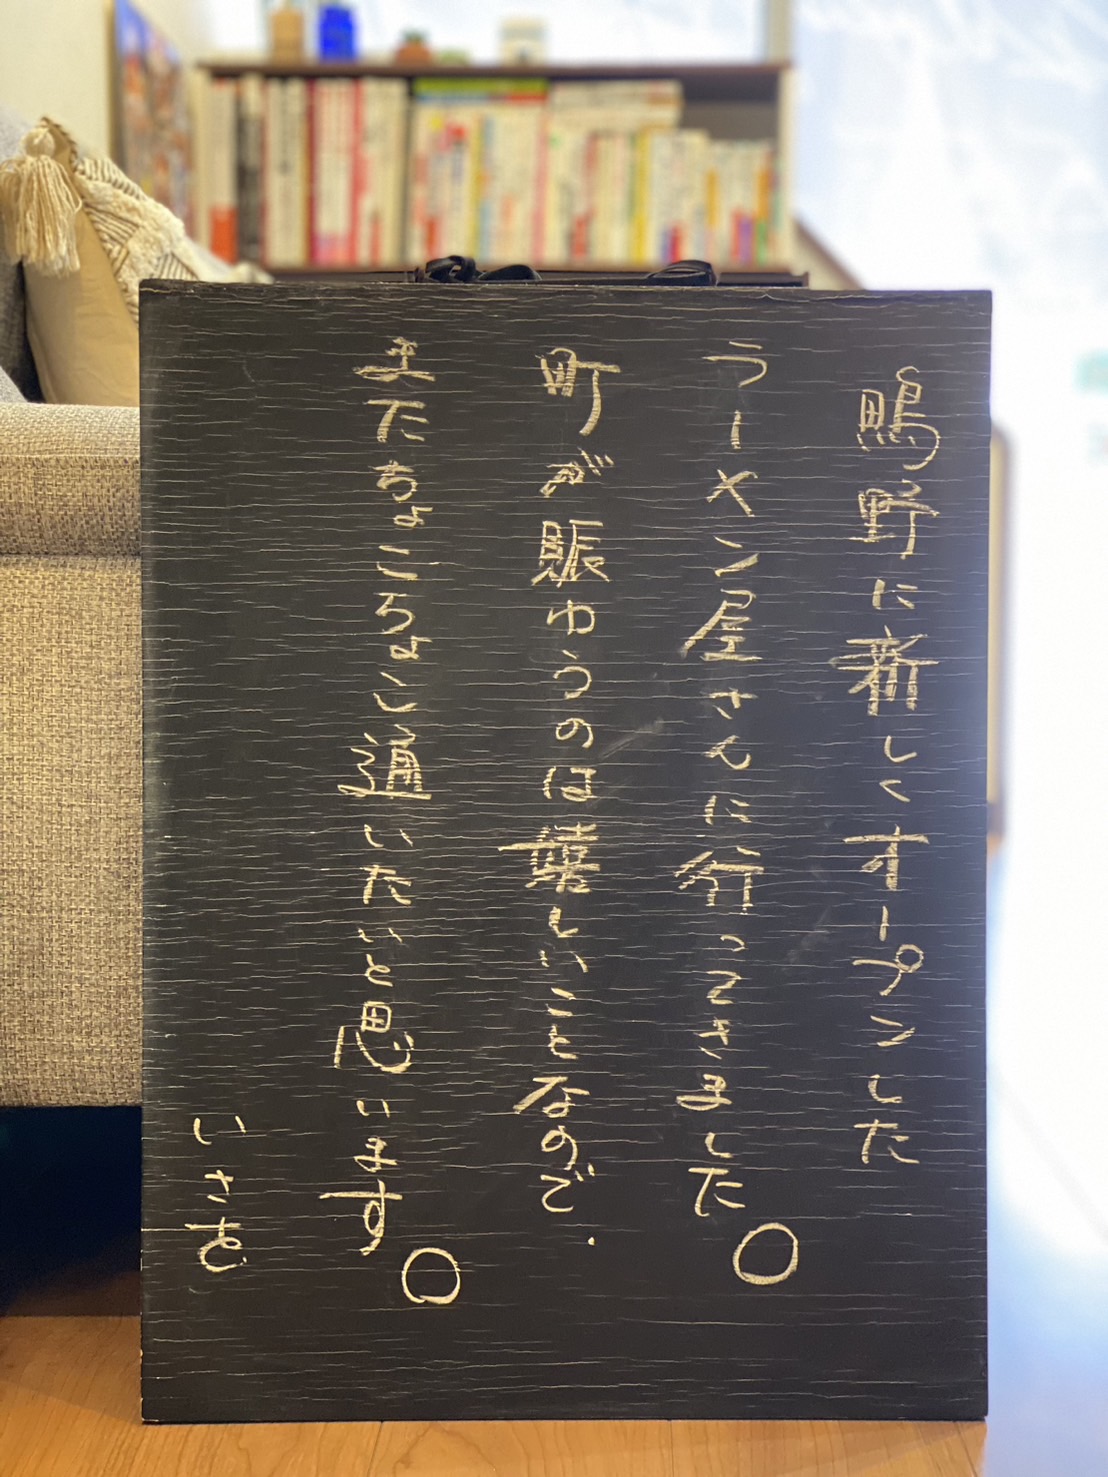 鴫野に新しくオープンした
ラーメン屋さんに行ってきました。
町が賑わうのは嬉しいことなので、
またちょこちょこ通いたいと思います。
いさを